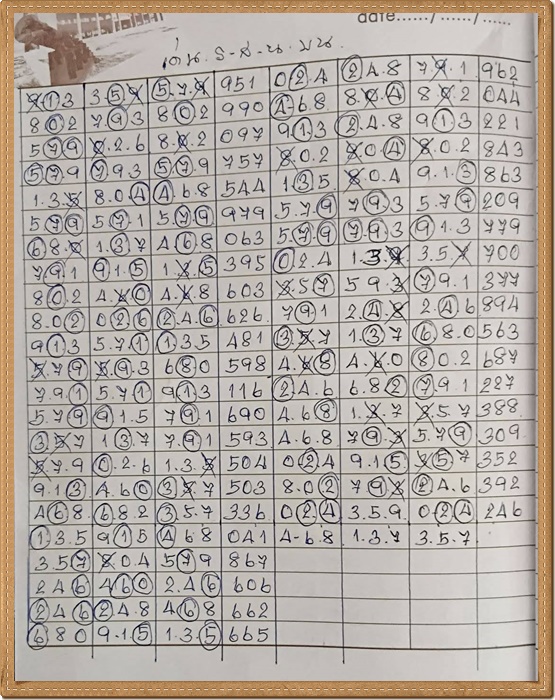 date....../ ....../ ......
เด่น.ร-ส-น.บน.
913 359 5.7.9 951 024 24.8 79.1 962
802 793 802 990 4.68 8.04 8.02 044
579 0.26 8.02 097 913 2.4.8 913 221
579 793 579 757 8.0.2 804 8.0.2 843
1.35 8.04 4.68 544 135 8.04 9.1.3 863
579 571 579 979 5.7.9 79.3 5.79 209
68.0 1.37 468 063 579 793 91.3 779
791 91.5 1.35 395 02.4 1.39 3.57 700
80.2 4.60 4.68 603 3.57 593 79.1 377
8.02 026 2.46 626 791 24.8 2.46 894
913 5.71 1.35 481 357 1.37 68.0 563
579 59.3 680 598 4.68 4.60 80.2 687
7.91 5.71 913 116 24.6 6.82 79.1 227
5.79 91.5 791 690 4.68 1.37 3.57 388
357 137 791 593 4.6.8 793 5.79 309
579 0.2.6 1.3.5 504 024 9.15 357 352
9.13 4.60 357 503 8.02 793 24.6 392
468 682 35.7 336 024 3.5.9 024 246
1.3.5 915 468 041 4-6.8 1.3.7 3.5.7
357 80.4 579 867
246 460 2.46 606
246 24.8 468 662
680 9.15 1.3.5 665